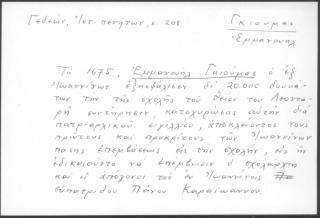 Γεδεών, Ἱστ. πενήτων, σ. 208
Γκιούμας
Ἐμμανουήλ
Τό 1675, Ἐμμανουήλ Γκιούμας ὁ ἐξ
Ἰωαννίνων ἐξησφάλισεν δι' 20.000 δουκά-
των τήν τῆς σχολῆς τοῦ θείου του Λεοντά-
ρη συντήρησιν, κατοχυρώσας αὐτήν διά
πατριαρχικοῦ σιγιλλίου, ἀποκλείοντος τούς
πρώτους καί προκρίτους τῶν Ἰωαννίνων
πάσης ἐπεμβάσεως εἰς τήν σχολήν, εἰς ἥν
ἐδικαιοῦντο νά ἐπεμβαίνουν ὁ σχολάρχης
καί οἱ ἀπόγονοι τοῦ ἐν Ἰωαννίνοις
εὐπατρίδου Πάνου Καραϊωάννου.